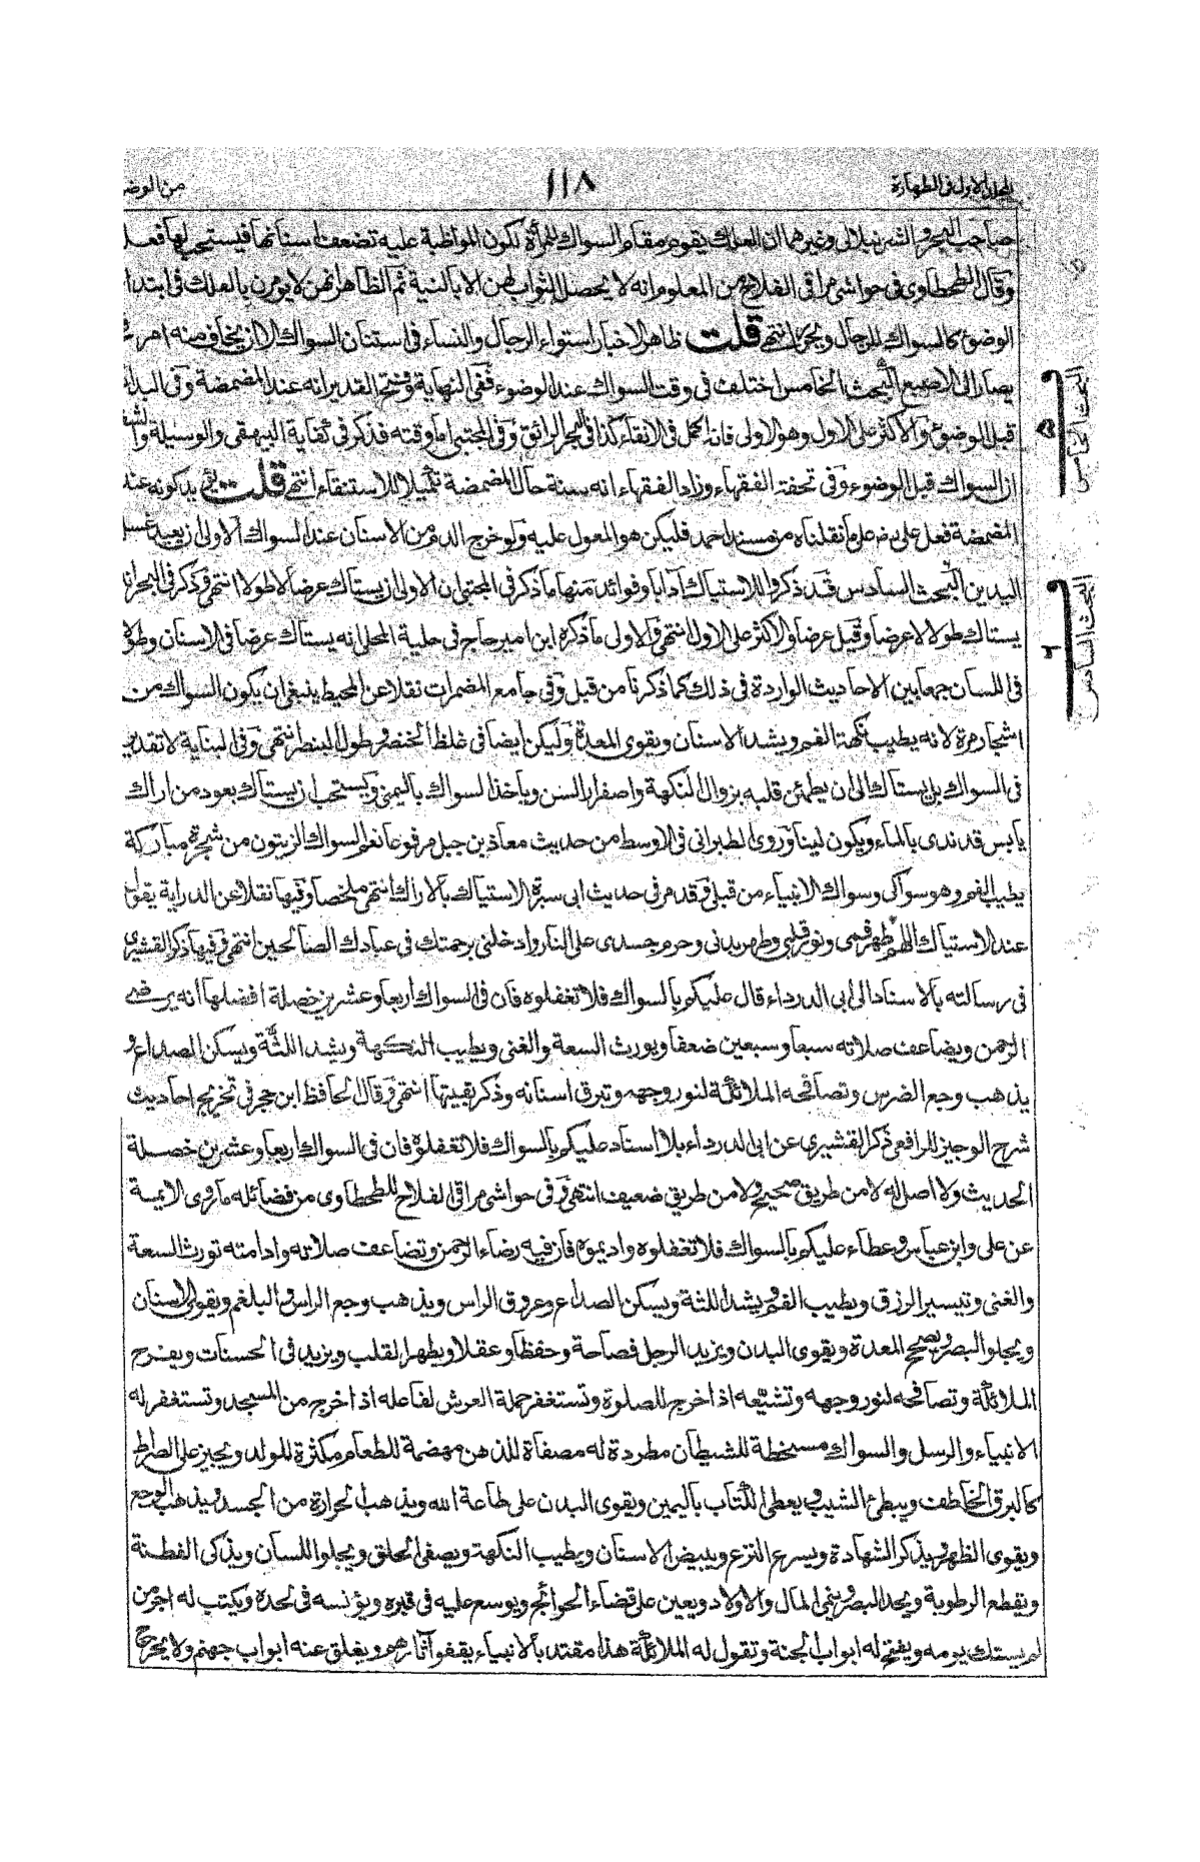 المجلد الاول فى الطهارة
١١٨
من الوض
صاحب البحر والشرنبلالى وغيرهما ان العلك يقوم مقام السواك للمرأة لكون المواظبة عليه تضعف اسنانها فيستحب لها فعله
وقال الطحطاوى فى حواشى مراقى الفلاح من المعلوم انه لا يحصل الثواب لهن الا بالنية ثم الظاهر انهن لا يؤمرن بالعلك فى ابتداء
الوضوء كالسواك للرجال ويحرر انتهى قلت ظاهر الاخبار استواء الرجال والنساء فى استنان السواك الا ان يخاف منه امر
يصار الى الاصبع البحث الخامس اختلف فى وقت السواك عند الوضوء ففى النهاية وفتح القدير انه عند المضمضة وفى البدائع
قبل الوضوء والاكثر على الاول وهو الاولى فانه اكمل فى الانقاء كذا فى البحر الرائق وفى المجتبى اما وقته فذكر فى كفاية البيهقى والوسيلة والشفا
ان السواك قبل الوضوء وفى تحفة الفقهاء وزاد الفقهاء انه سنة حال المضمضة تكميلا للاستنقاء انتهى قلت يؤيد كونه عند
المضمضة فعل على رض على ما نقلناه من مسند احمد فليكن هو المعول عليه ولو خرج الدم من الاسنان عند السواك الاولى ان يعيد غسل
اليدين البحث السادس قد ذكروا للاستياك آدابا وفوائد منها ما ذكر فى المجتبى ان الاولى ان يستاك عرضا لا طولا انتهى وذكر فى البحر انه
يستاك طولا لا عرضا وقيل عرضا والاكثر على الاول انتهى والاولى ما ذكره ابن امير حاج فى حلية المحلى انه يستاك عرضا فى الاسنان وطولا
فى اللسان جمعا بين الاحاديث الواردة فى ذلك كما ذكرنا من قبل وفى جامع المضمرات نقلا عن المحيط ينبغى ان يكون السواك من
اشجار مرة لانه يطيب نكهة الفم ويشد الاسنان ويقوى المعدة وليكن ايضا فى غلظ الخنصر وطول البنصر انتهى وفى البناية لا تقدير
فى السواك بل يستاك الى ان يطمئن قلبه بزوال النكهة واصفرار السن وياخذ السواك باليمنى ويستحب ان يستاك بعود من اراك
يابس قد ندى بالماء ويكون لينا وروى الطبرانى فى الاوسط من حديث معاذ بن جبل مرفوعا نعم السواك الزيتون من شجرة مباركة
يطيب الفم وهو سواكى وسواك الانبياء من قبلى وقد مر فى حديث ابى سبرة الاستياك بالاراك انتهى ملخصا وفيها نقلا عن الدراية يقول
عند الاستياك اللهم طهر فمى ونور قلبى وطهر بدنى وحرم جسدى على النار وادخلنى برحمتك فى عبادك الصالحين انتهى وفيها ذكر القشيرى
فى رسالته بالاسناد الى ابى الدرداء قال عليكم بالسواك فلا تغفلوه فان فى السواك اربعا وعشرين خصلة افضلها انه يرضى
الرحمن ويضاعف صلاته سبعا وسبعين ضعفا ويورث السعة والغنى ويطيب النكهة ويشد اللثة ويسكن الصداع و
يذهب وجع الضرس وتصافحه الملائكة لنور وجهه وتبرق اسنانه وذكر بقيتها انتهى وقال الحافظ ابن حجر فى تخريج احاديث
شرح الوجيز للرافعى ذكر القشيرى عن ابى الدرداء بلا اسناد عليكم بالسواك فلا تغفلوه فان فى السواك اربعا وعشرين خصلة
الحديث ولا اصل له لا من طريق صحيح ولا من طريق ضعيف انتهى وفى حواشى مراقى الفلاح للطحطاوى من فضائله ما روى الايمة
عن على وابن عباس وعطاء عليكم بالسواك فلا تغفلوه واديموه فان فيه رضاء الرحمن وتضاعف صلاته وادامته تورث السعة
والغنى وتيسير الرزق ويطيب الفم ويشد اللثة ويسكن الصداع وعروق الراس ويذهب وجع الراس والبلغم ويقوى الاسنان
ويجلو البصر ويصحح المعدة ويقوى البدن ويزيد الرجل فصاحة وحفظا وعقلا ويطهر القلب ويزيد فى الحسنات ويفرح
الملائكة وتصافحه لنور وجهه وتشيعه اذا خرج للصلوة وتستغفر حملة العرش لفاعله اذا خرج من المسجد وتستغفر له
الانبياء والرسل والسواك مسخطة للشيطان مطردة له مصفاة للذهن مهضمة للطعام مكثرة للولد ويجيز على الصراط
كالبرق الخاطف ويبطئ الشيب ويعطى الكتاب باليمين ويقوى البدن على طاعة الله ويذهب الحرارة من الجسد ويذهب الوجع
ويقوى الظهر ويذكر الشهادة ويسرع النزع ويبيض الاسنان ويطيب النكهة ويصفى الحلق ويجلو اللسان ويذكى الفطنة
ويقطع الرطوبة ويحد البصر وينمى المال والاولاد ويعين على قضاء الحوائج ويوسع عليه فى قبره ويؤنسه فى لحده ويكتب له اجر من
لم يستك يومه ويفتح له ابواب الجنة وتقول له الملائكة هذا مقتد بالانبياء يقفو آثارهم ويغلق عنه ابواب جهنم ولا يخرج
البحث الخامس
البحث السادس